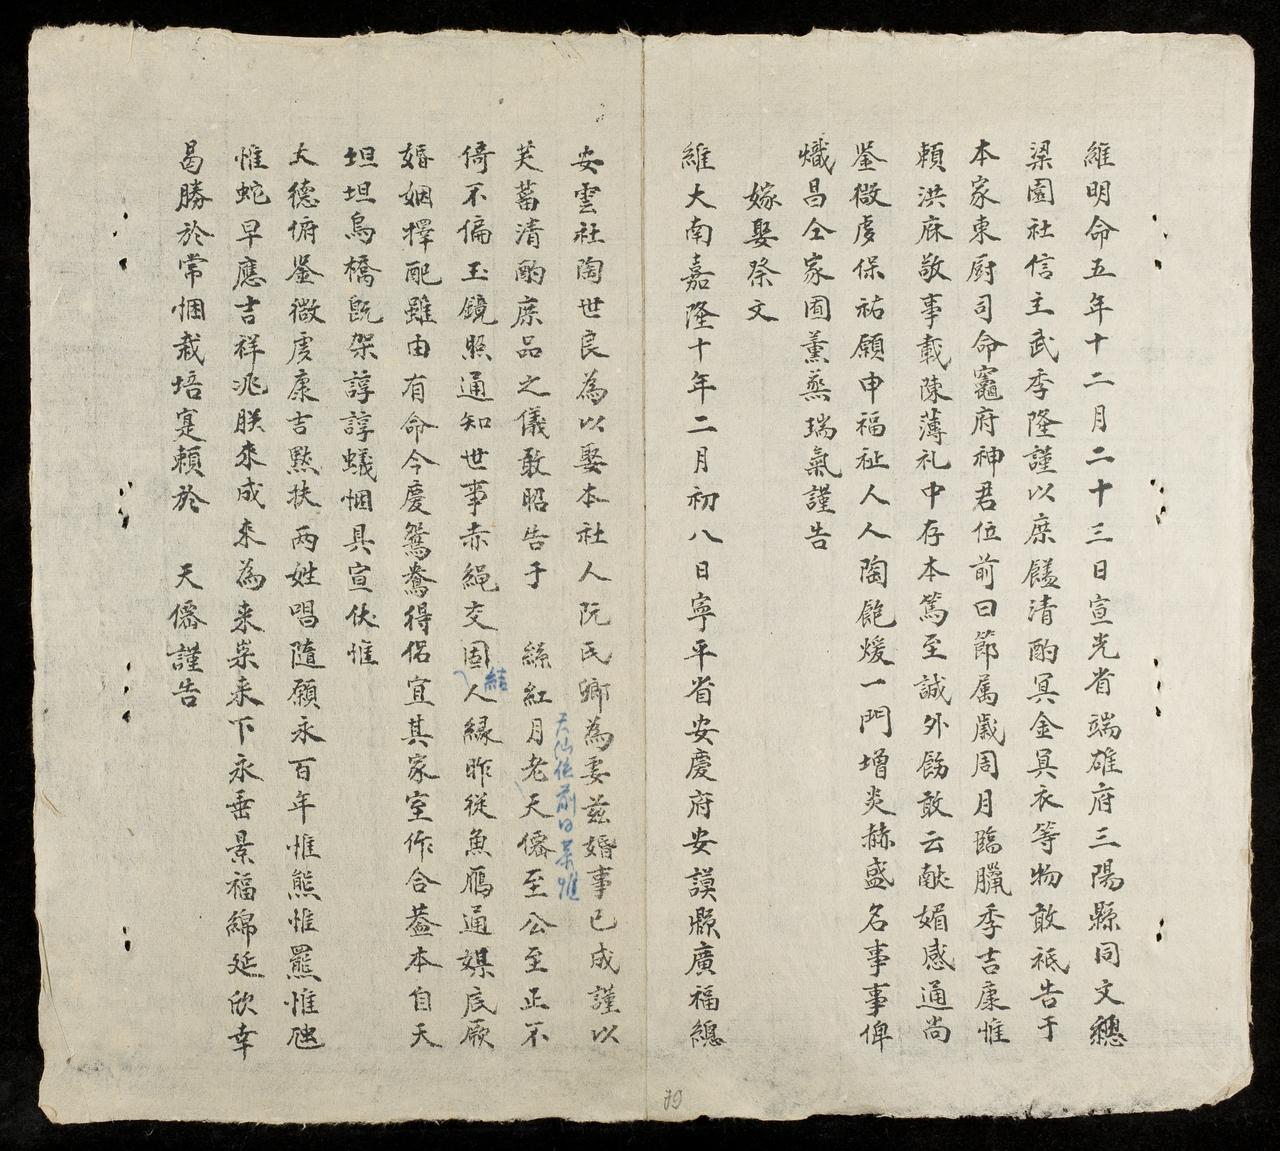 維明命五年十二月二十三日宣光省端雄府三陽縣同文總
梁園社信主武季隆謹以庶饈清酌冥金冥衣等物敢祗告于
本家東厨司命竈府神君位前曰節属歲周月臨臘季吉康惟
頼洪庥敬事載陳薄礼中存本篤至誠外飭敢云献媚感通尚
鉴微虔保祐願申福祉人人陶飽煖一門增炎赫盛名事事俾
熾昌仝家囿薰蒸瑞氣謹告
嫁娶祭文
維大南嘉隆十年二月初八日寧平省安慶府安謨縣廣福總
安雲社陶世良為以娶本社人阮民鄉為妻茲婚事已成謹以
芙蔔清酌庶品之儀敢昭告于 絲紅月老天僊至公至正不
天仙位前曰恭惟
倚不偏玉鏡照通知世事赤繩交固人縁昨從魚鴈通媒底厥
結
婚姻擇配雖由有命今慶鴛鴦得侶宜其家室作合蓋本自天
坦坦烏橋既架諄諄蟻悃具宣伏惟
大德俯鉴微虔康吉黙扶両姓唱隨願永百年惟熊惟羆惟虺
惟蛇早應吉祥兆朕來成來為来崇来下永垂景福綿延欣幸
曷勝於常悃栽培寔頼於 天僊謹告
79